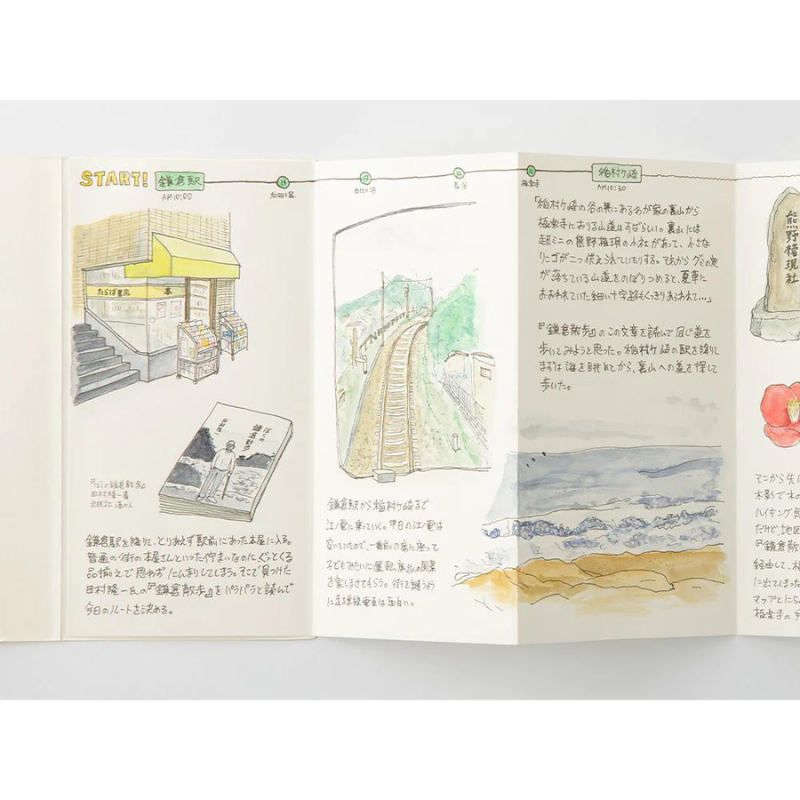 START!
鎌倉駅
AM10:00
和田塚
由比ヶ浜
長谷
極楽寺
稲村ヶ崎
AM10:30
たらば書房 本
ぼくの
鎌倉散歩
田村隆一
『ぼくの鎌倉散歩』
田村隆一著
出版社 港の人
鎌倉駅を降りて、とりあえず駅前にあった本屋に入る。
普通の街の本屋さんといった佇まいなのにぐっとくる
品揃えで思わずたんまりしてしまう。そこで見つけた
田村隆一氏の『鎌倉散歩』をパラパラと読んで
今日のルートを決める。
鎌倉駅から稲村ヶ崎まで
江ノ電に乗っていく。平日の江ノ電は
空いていたので、一番前の席に座って
子どもみたいに運転席からの風景
を楽しませてもらう。街を縫うように
走る単線電車は面白い。
「稲村ヶ崎の谷の奥にあるわが家の裏山から
極楽寺におりる山道はすばらしい。裏山には
超ミニの熊野権現の小社があって、小さな
リンゴが二つ供えられていたりする。それから グミの実
が落ちている山道をのぼりつめると、夏草に
おおわれていた細い十字路もくっきりあらわれて…」
『鎌倉散歩』のこの文章を読んで同じ道を
歩いてみようと思った。稲村ヶ崎の駅を降りて
まずは海を眺めてから、裏山への道を探して
歩いた。
熊野権現社
そこから
木影で木
ハイキング
だけど、地図
『鎌倉散
経由して、極
に出てしまった
マップとにら
極楽寺の